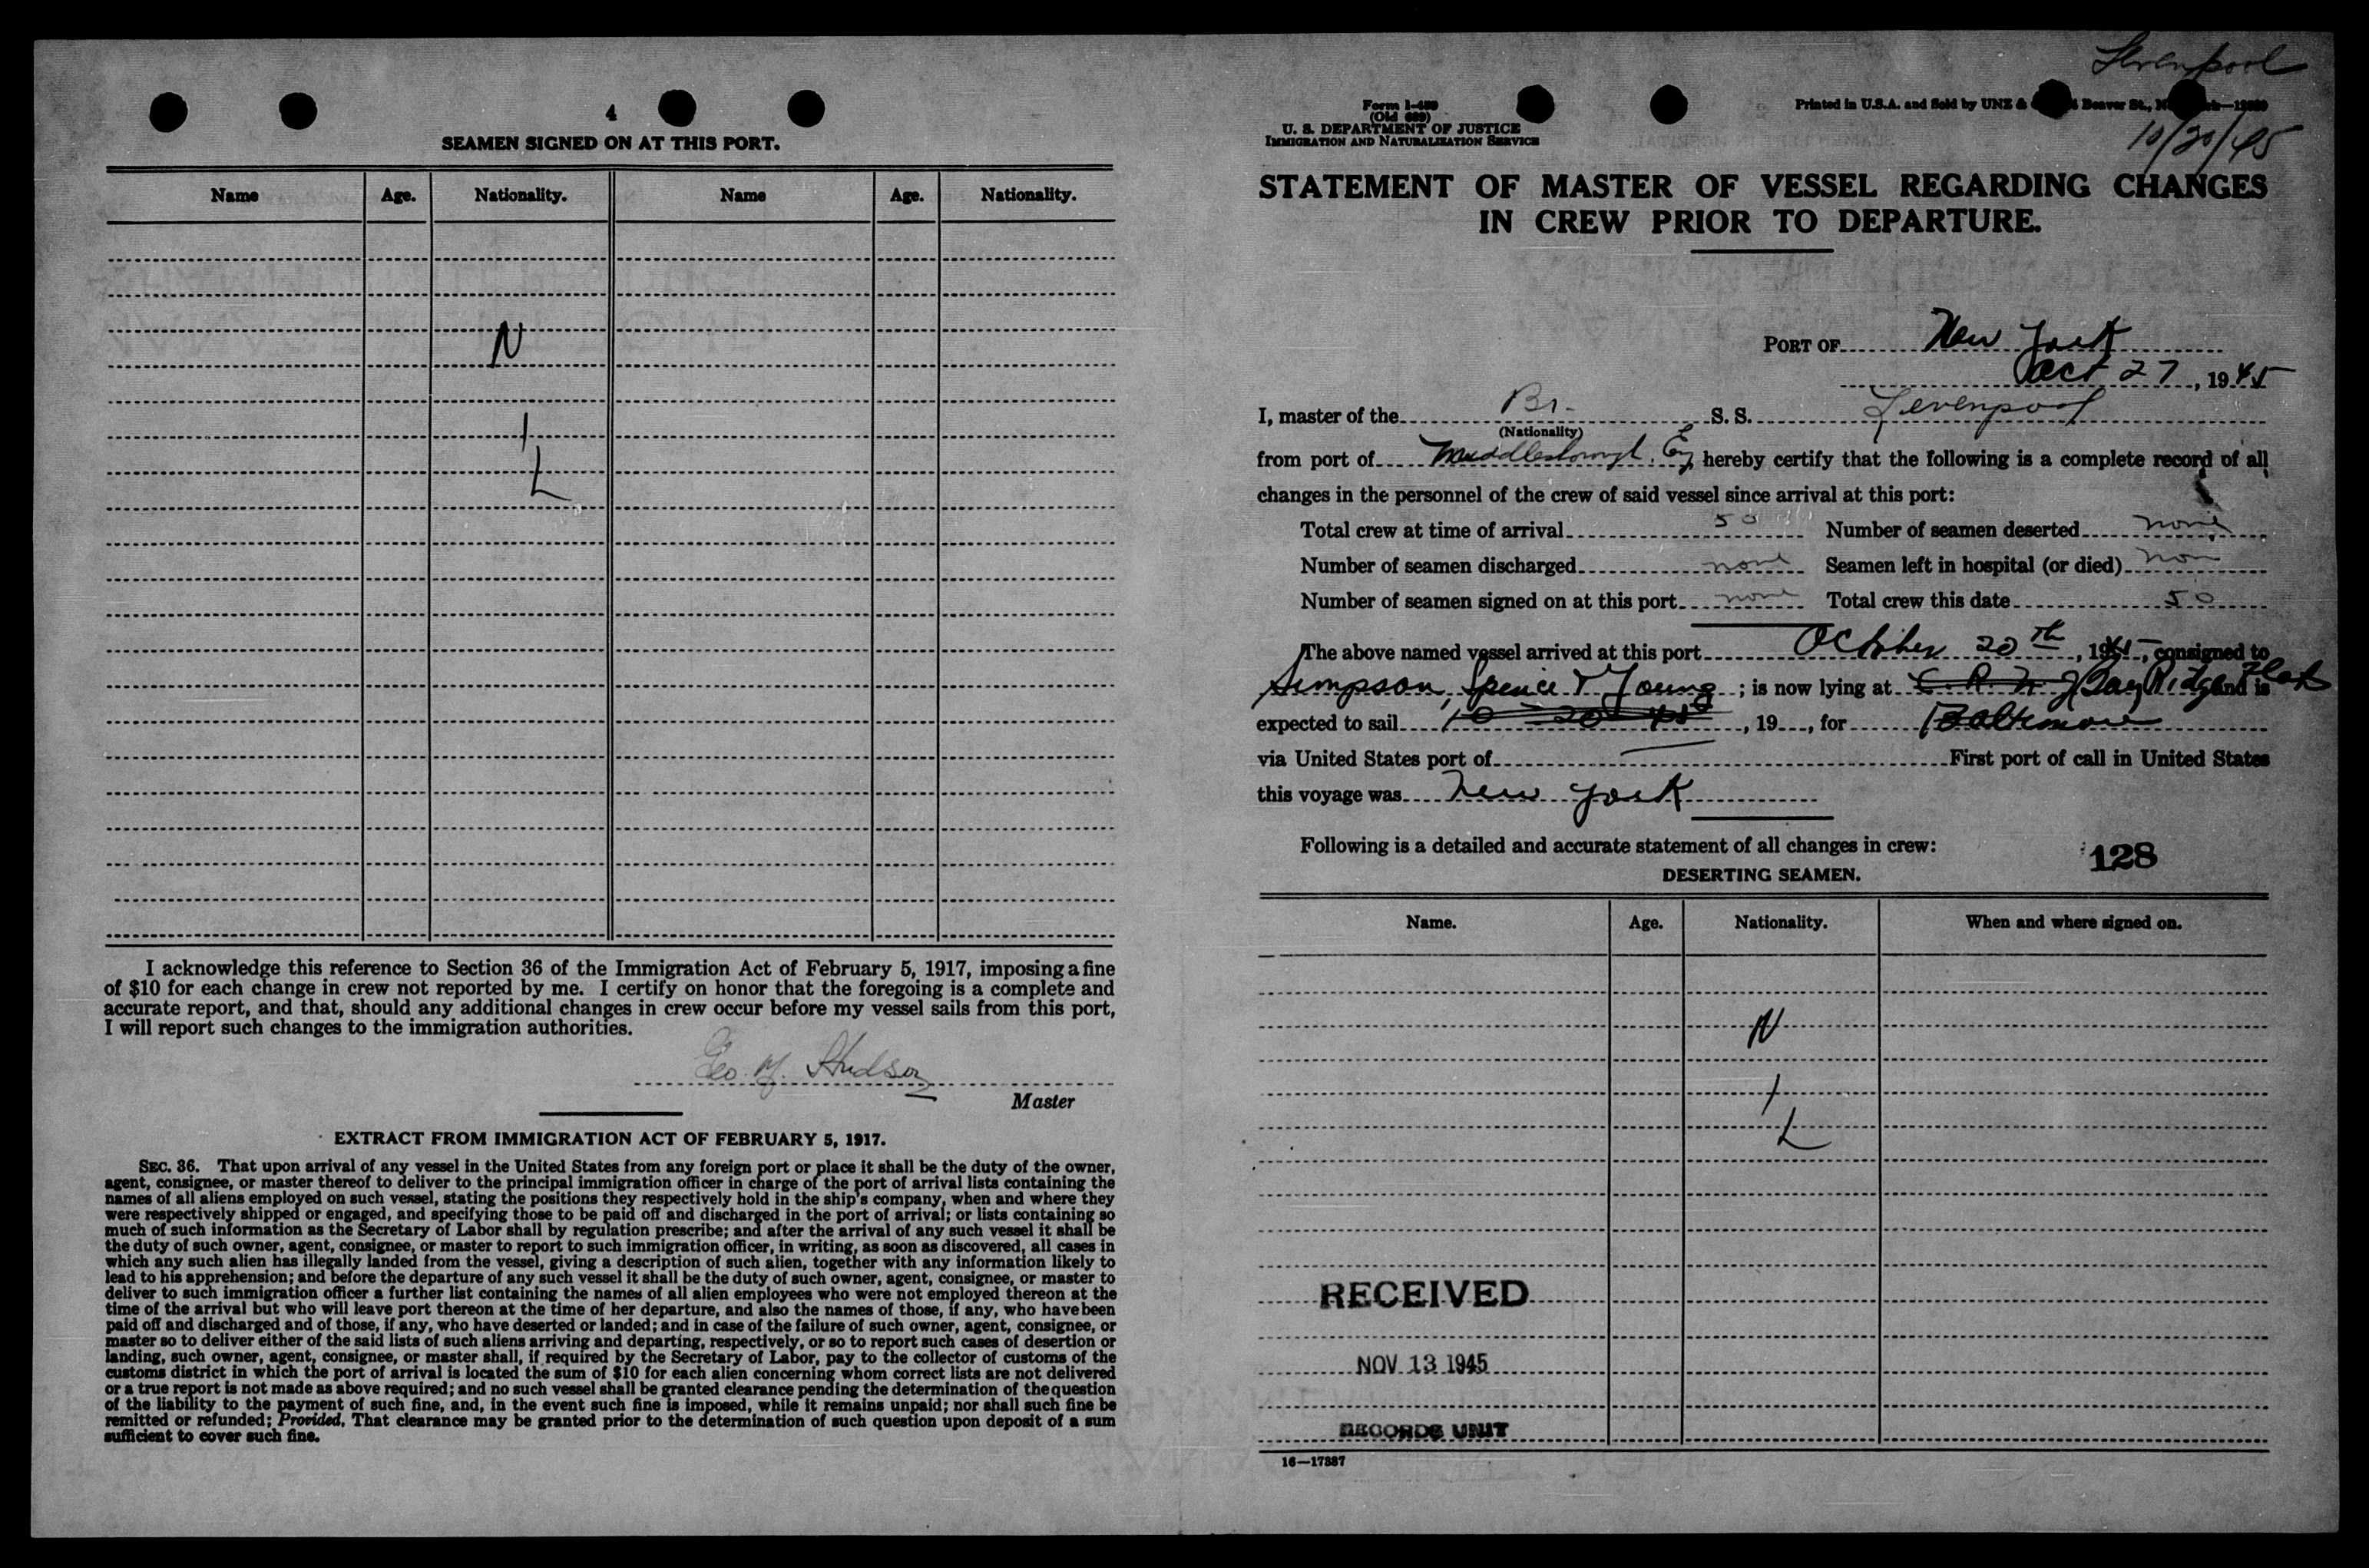 4
SEAMEN SIGNED ON AT THIS PORT.
Name Age. Nationality. Name Age. Nationality.
N
I
L
I acknowledge this reference to Section 36 of the Immigration Act of February 5, 1917, imposing a fine
of $10 for each change in crew not reported by me. I certify on honor that the foregoing is a complete and
accurate report, and that, should any additional changes in crew occur before my vessel sails from this port,
I will report such changes to the immigration authorities.
Geo. Hudson
Master
EXTRACT FROM IMMIGRATION ACT OF FEBRUARY 5, 1917.
SEC. 36. That upon arrival of any vessel in the United States from any foreign port or place it shall be the duty of the owner,
agent, consignee, or master thereof to deliver to the principal immigration officer in charge of the port of arrival lists containing the
names of all aliens employed on such vessel, stating the positions they respectively hold in the ship's company, when and where they
were respectively shipped or engaged, and specifying those to be paid off and discharged in the port of arrival; or lists containing so
much of such information as the Secretary of Labor shall by regulation prescribe; and after the arrival of any such vessel it shall be
the duty of such owner, agent, consignee, or master to report to such immigration officer, in writing, as soon as discovered, all cases in
which any such alien has illegally landed from the vessel, giving a description of such alien, together with any information likely to
lead to his apprehension; and before the departure of any such vessel it shall be the duty of such owner, agent, consignee, or master to
deliver to such immigration officer a further list containing the names of all alien employees who were not employed thereon at the
time of the arrival but who will leave port thereon at the time of her departure, and also the names of those, if any, who have been
paid off and discharged and of those, if any, who have deserted or landed; and in case of the failure of such owner, agent, consignee, or
master so to deliver either of the said lists of such aliens arriving and departing, respectively, or so to report such cases of desertion or
landing, such owner, agent, consignee, or master shall, if required by the Secretary of Labor, pay to the collector of customs of the
customs district in which the port of arrival is located the sum of $10 for each alien concerning whom correct lists are not delivered
or a true report is not made as above required; and no such vessel shall be granted clearance pending the determination of the question
of the liability to the payment of such fine, and, in the event such fine is imposed, while it remains unpaid; nor shall such fine be
remitted or refunded; Provided, That clearance may be granted prior to the determination of such question upon deposit of a sum
sufficient to cover such fine.
Levenpool
Form I-489
(Old 689)
U. S. DEPARTMENT OF JUSTICE
IMMIGRATION AND NATURALIZATION SERVICE
Printed in U.S.A. and Sold by UNZ & Beaver St.,
10/20/45
STATEMENT OF MASTER OF VESSEL REGARDING CHANGES
IN CREW PRIOR TO DEPARTURE.
PORT OF New York
Oct 27, 1945
I, master of the Br. S. S. Levenpool
(Nationality)
from port of Middlesborough. Eng hereby certify that the following is a complete record of all
changes in the personnel of the crew of said vessel since arrival at this port:
Total crew at time of arrival 50 Number of seamen deserted none
Number of seamen discharged none Seamen left in hospital (or died) non
Number of seamen signed on at this port none Total crew this date 50
The above named vessel arrived at this port October 20th, 1945, consigned to
Simpson, Spence & Young; is now lying at Bay Ridge Flats and is
expected to sail 10 20 45, 19, for Baltimore
via United States port of — First port of call in United States
this voyage was New York
Following is a detailed and accurate statement of all changes in crew:
128
DESERTING SEAMEN.
Name. Age. Nationality. When and where signed on.
N
I
L
RECEIVED
NOV 13 1945
RECORDS UNIT
16—17387